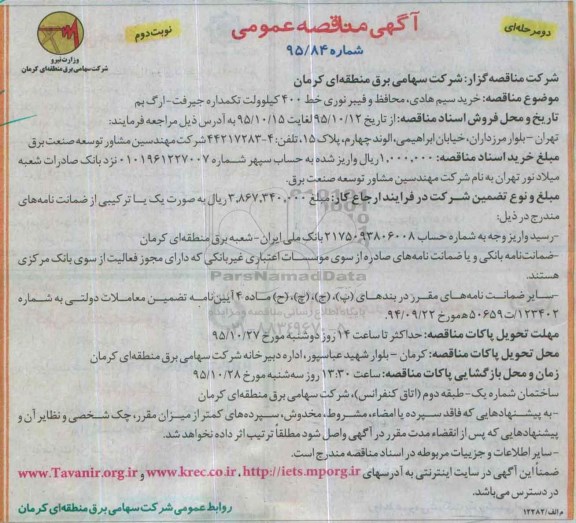 دومرحله‌ای
آگهی مناقصه عمومی
نوبت دوم
شماره ۹۵/۸۴
وزارت نیرو
شرکت سهامی برق منطقه‌ای کرمان
شرکت مناقصه گزار: شرکت سهامی برق منطقه‌ای کرمان
موضوع مناقصه: خرید سیم هادی، محافظ و فیبر نوری خط ۴۰۰ کیلوولت تکمداره جیرفت-ارگ بم
تاریخ و محل فروش اسناد مناقصه: از تاریخ ۹۵/۱۰/۱۲ لغایت ۹۵/۱۰/۱۵ به آدرس ذیل مراجعه فرمایند:
تهران-بلوار مرزداران، خیابان ابراهیمی، الوند چهارم، پلاک ۱۵، تلفن: ۴-۴۴۲۱۷۲۸۳ شرکت مهندسین مشاور توسعه صنعت برق
مبلغ خرید اسناد مناقصه: ۱,۰۰۰,۰۰۰ ریال واریز شده به حساب سپهر شماره ۰۱۰۱۹۶۱۲۲۷۰۰۷ نزد بانک صادرات شعبه
میلاد نور تهران به نام شرکت مهندسین مشاور توسعه صنعت برق.
مبلغ و نوع تضمین شرکت در فرایند ارجاع کار: مبلغ ۳,۸۶۷,۳۴۰,۰۰۰ ریال به صورت یک یا ترکیبی از ضمانت نامه‌های
مندرج در ذیل:
-رسید واریز وجه به شماره حساب ۲۱۷۵۰۹۳۸۰۶۰۰۸ بانک ملی ایران-شعبه برق منطقه‌ای کرمان
-ضمانت‌نامه بانکی و یا ضمانت نامه‌های صادره از سوی موسسات اعتباری غیربانکی که دارای مجوز فعالیت از سوی بانک مرکزی
هستند.
ParsNamadData
-سایر ضمانت نامه‌های مقرر در بندهای (پ)، (ج)، (چ)، (ح) ماده ۴ آیین نامه تضمین معاملات دولتی به شماره
۱۲۳۴۰۲/ت۵۰۶۵۹ه مورخ ۹۴/۰۹/۲۲.
مهلت تحویل پاکات مناقصه: حداکثر تا ساعت ۱۴ روز دوشنبه مورخ ۹۵/۱۰/۲۷
محل تحویل پاکات مناقصه: کرمان - بلوار شهید عباسپور، اداره دبیرخانه شرکت سهامی برق منطقه‌ای کرمان
زمان و محل بازگشایی پاکات مناقصه: ساعت ۱۳:۳۰ روز سه‌شنبه مورخ ۹۵/۱۰/۲۸
ساختمان شماره یک-طبقه دوم (اتاق کنفرانس)، شرکت سهامی برق منطقه‌ای کرمان
-به پیشنهادهایی که فاقد سپرده یا امضاء، مشروط، مخدوش، سپرده‌های کمتر از میزان مقرر، چک شخصی و نظایر آن و
پیشنهادهایی که پس از انقضاء مدت مقرر در آگهی واصل شود مطلقاً ترتیب اثر داده نخواهد شد.
-سایر اطلاعات و جزییات مربوطه در اسناد مناقصه مندرج است.
ضمناً این آگهی در سایت اینترنتی به آدرسهای www.krec.co.ir، http://iets.mporg.ir و www.Tavanir.org.ir
در دسترس می‌باشد.
روابط عمومی شرکت سهامی برق منطقه‌ای کرمان
م الف/۱۲۲۸۲